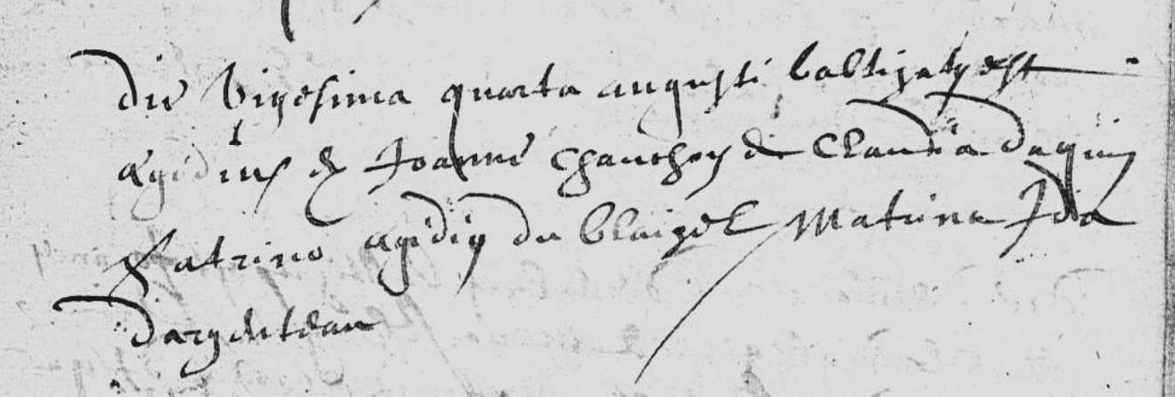 die vigesima quarta augusti baptizatus est
Ægidius ex Joanne Chanthey et Claudia daguin
Patrino Ægidius du blaizel Matrina Ida
d'argenteau